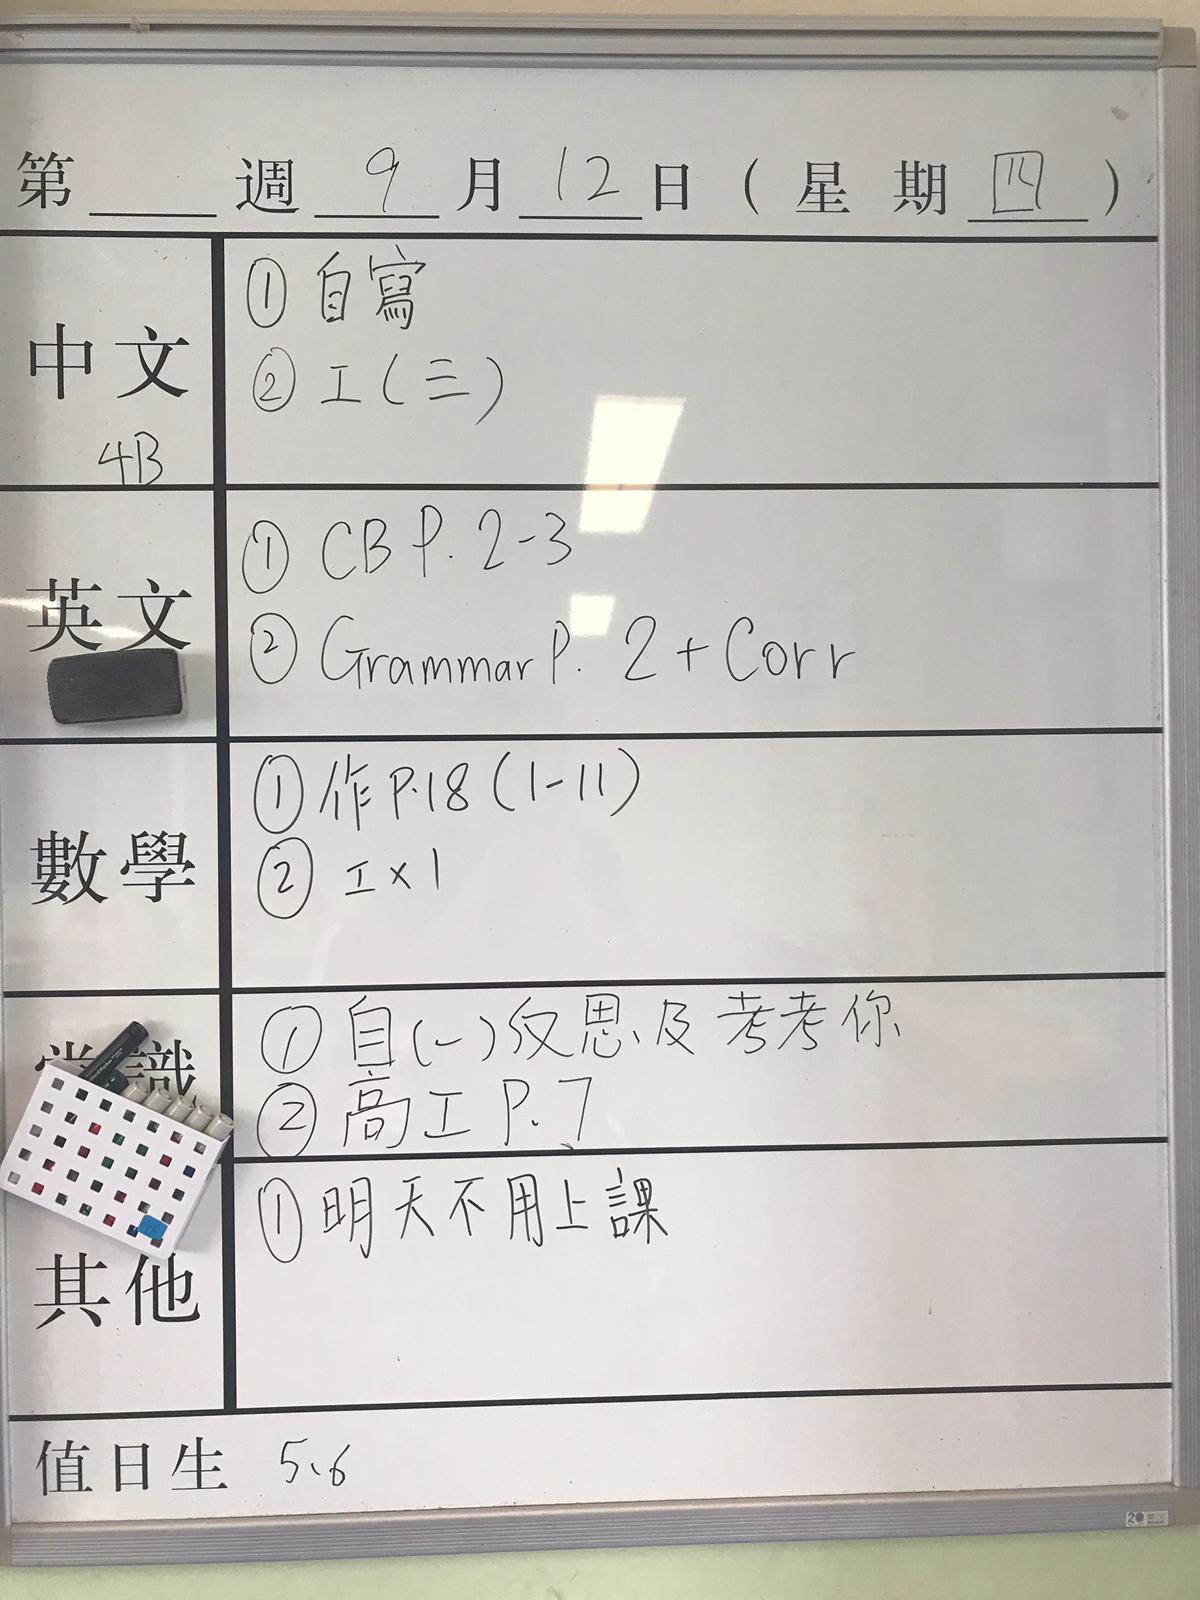 第 週 9 月 12 日 ( 星 期 四 )
中文
4B
① 自寫
② 工(三)
英文
① CB P. 2-3
② Grammar P. 2 + Corr
數學
① 作 P.18 (1-11)
② 工 x 1
常識
① 自(一)反思及考考你
② 高工 P.7
其他
① 明天不用上課
值日生 5、6